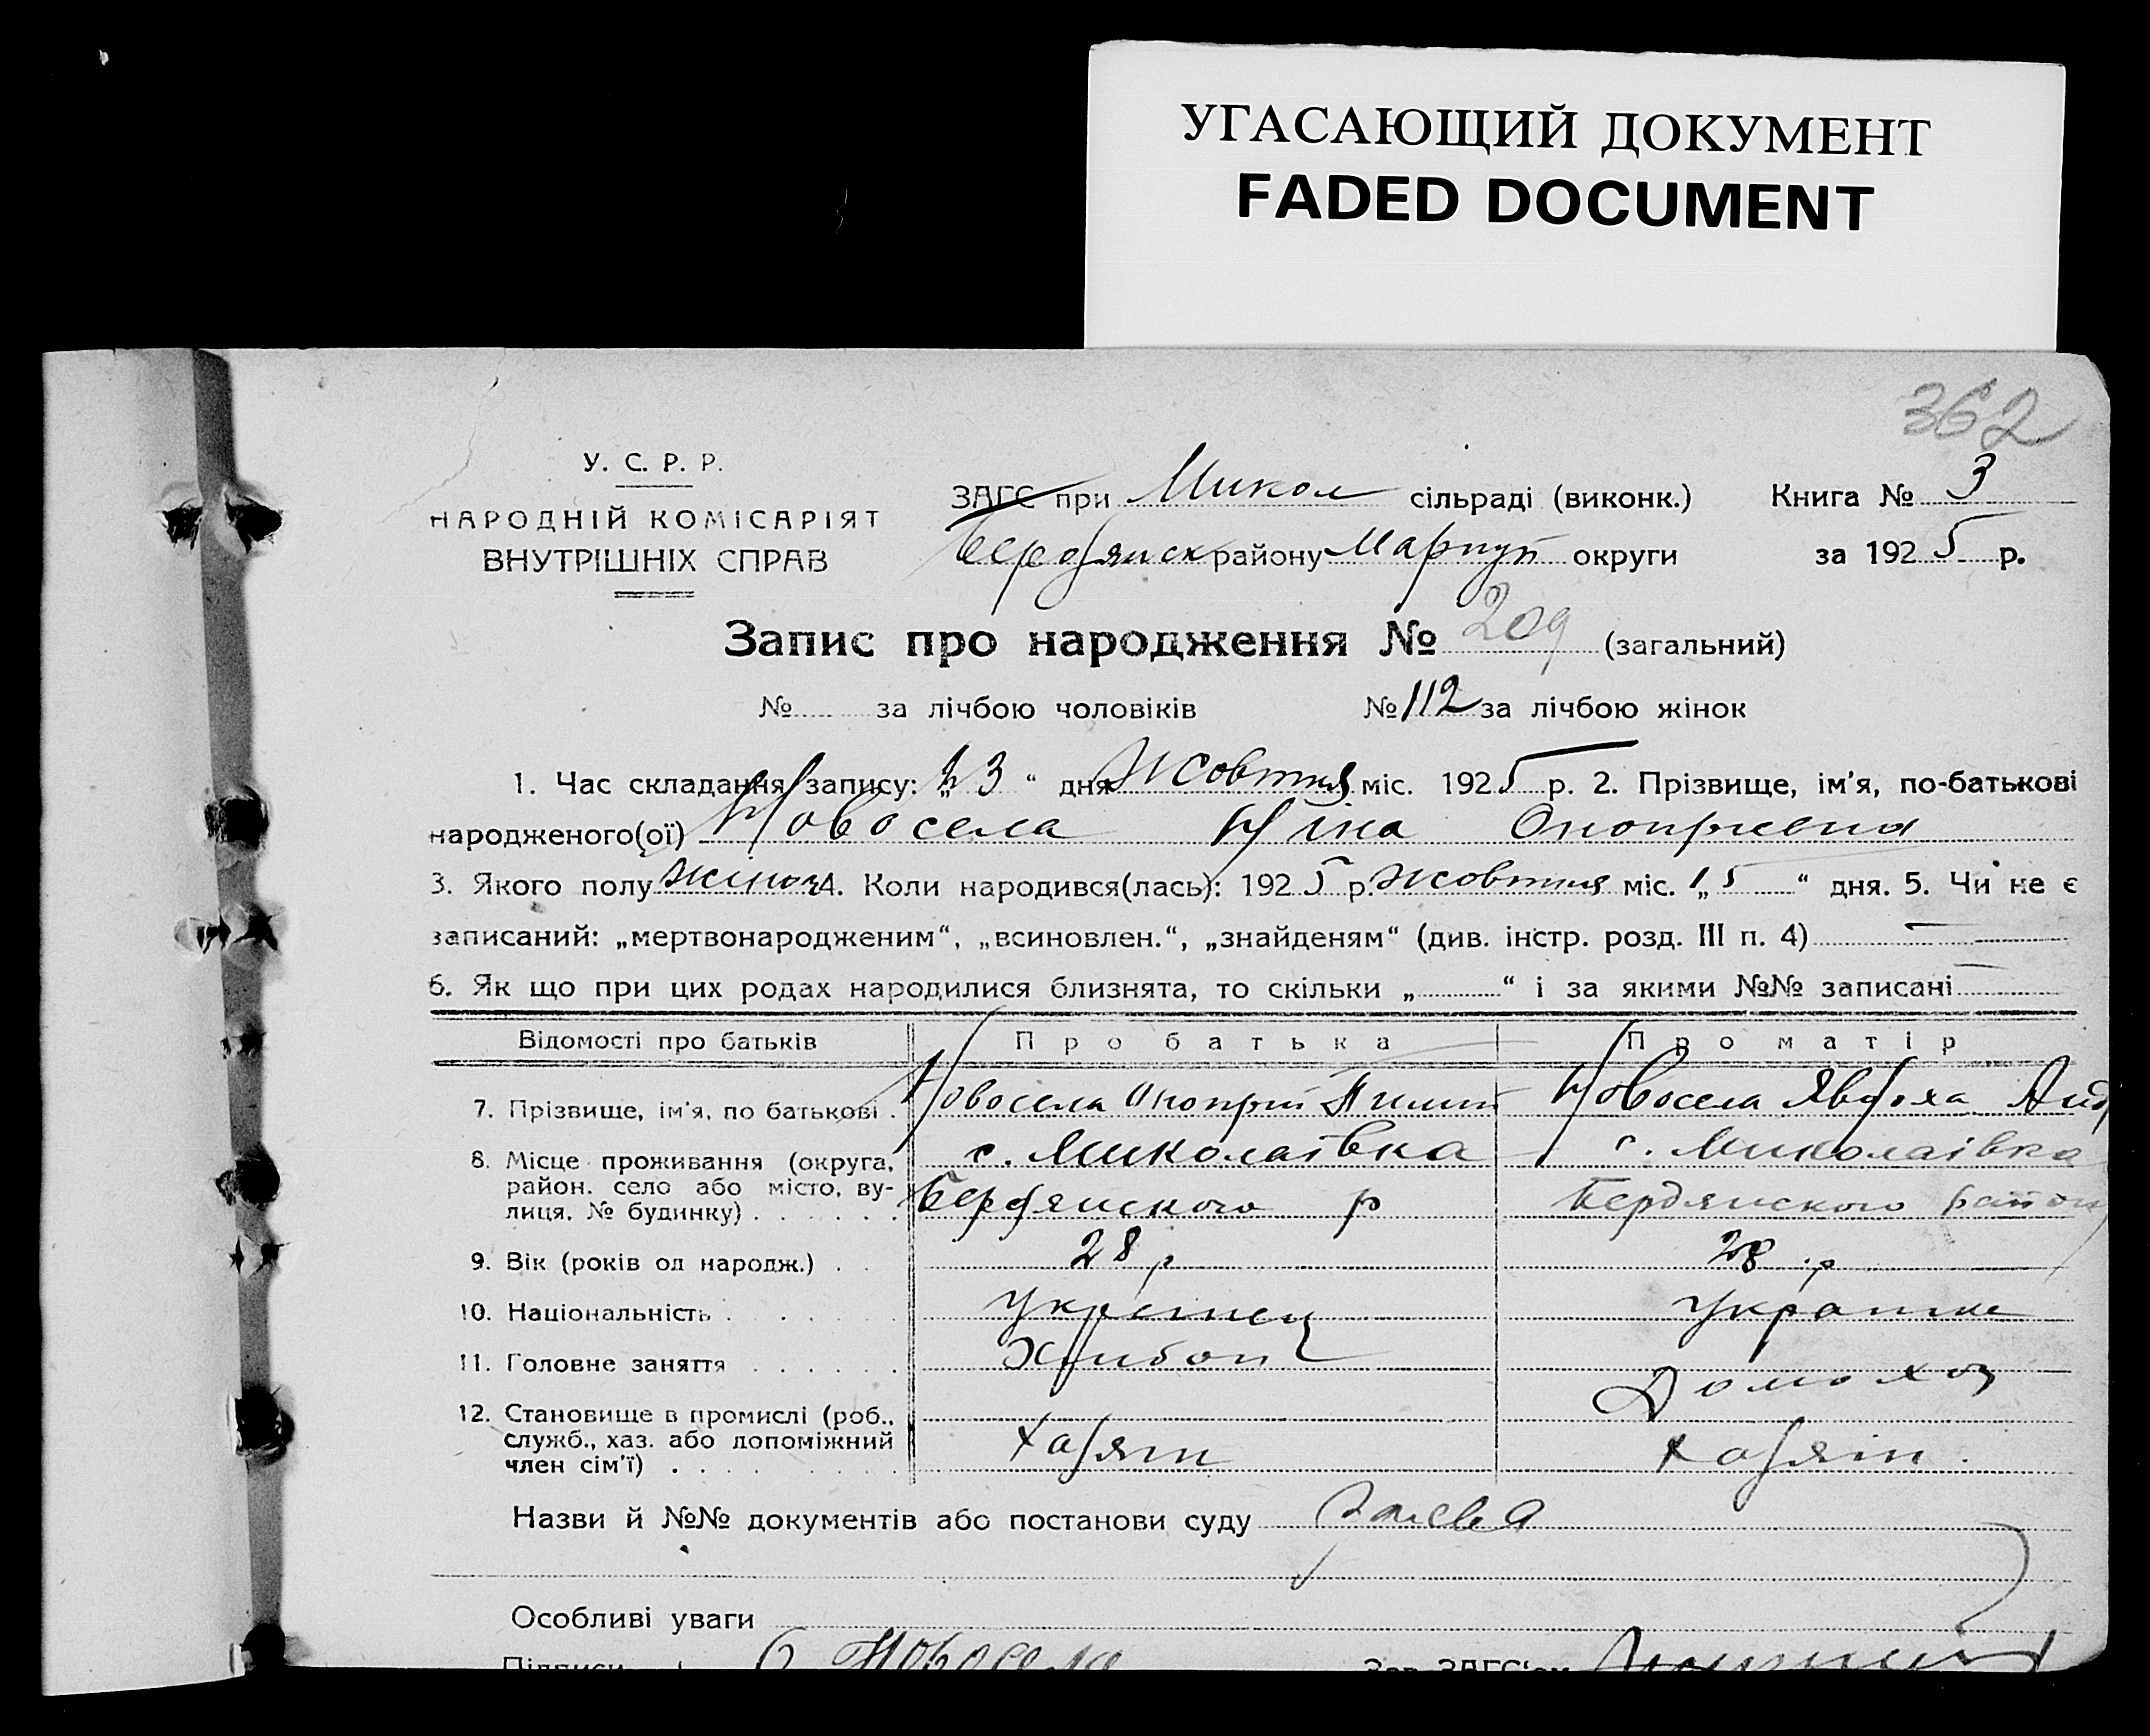 УГАСАЮЩИЙ ДОКУМЕНТ
FADED DOCUMENT
362
У. С. Р. Р.
НАРОДНІЙ КОМІСАРІЯТ
ВНУТРІШНІХ СПРАВ
ЗАГС при Микол сільраді (виконк.) Книга № 3
Бердянск району Маріуп округи за 1925 р.
Запис про народження № 209 (загальний)
№ за лічбою чоловіків № 112 за лічбою жінок
1. Час складання запису: „23“ дня Жовтня міс. 1925 р. 2. Прізвище, ім'я, по-батькові
народженого(ої) Новосела Ніна Оноприевна
3. Якого полу жіноч 4. Коли народився(лась): 1925 р. жовтня міс. „15“ дня. 5. Чи не є
записаний: „мертвонародженим“, „всиновлен.“, „знайденям“ (див. інстр. розд. III п. 4) —
6. Як що при цих родах народилися близнята, то скільки „ “ і за якими №№ записані
Відомості про батьків Про батька Про матір
7. Прізвище, ім'я, по батькові . Новосела Оноприй Пилип Новосела Явдоха Анд
8. Місце проживання (округа, с. Миколаївка с. Миколаівка
район, село або місто, ву- Бердянского р Бердянского району
лиця, № будинку) . . . . . .
9. Вік (років од народж.) . . 28 р 28 р
10. Національність . . . . . Украинец Украинке
11. Головне заняття . . . . . . Хлибоп Домохоз
12. Становище в промислі (роб.,
служб., хаз. або допоміжний Хазяин Хазяін.
член сім'ї) . . . .
Назви й №№ документів або постанови суду Заява
Особливі уваги
Підписи Новосела Зав. ЗАГС'ом